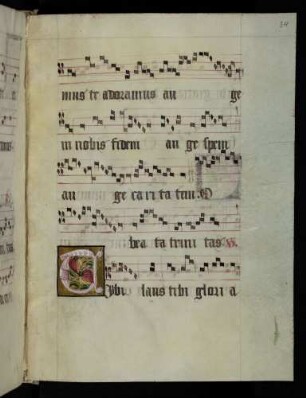 mus te adoramus au ge
in nobis fidem au ge spem
au ge cari ta tem O
bea ta trini tas
ybi laus tibi glori a